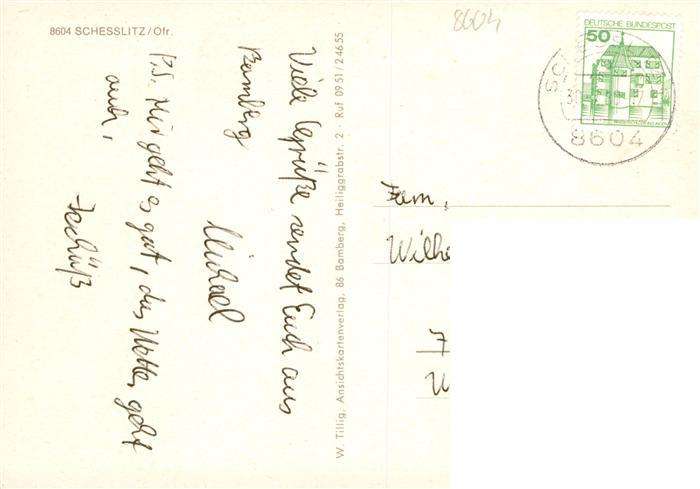 8604 SCHESSLITZ/Ofr.
Viele Grüße sendet Euch aus
Bamberg
Michael
P.S. Mir geht es gut, das Wetter geht
auch,
Tschüß
W. Tillig, Ansichtskartenverlag, 86 Bamberg, Heiliggrabstr. 2 · Ruf 09 51 / 2 46 55
8604
DEUTSCHE BUNDESPOST
50
8604
Fam.
Wilhe